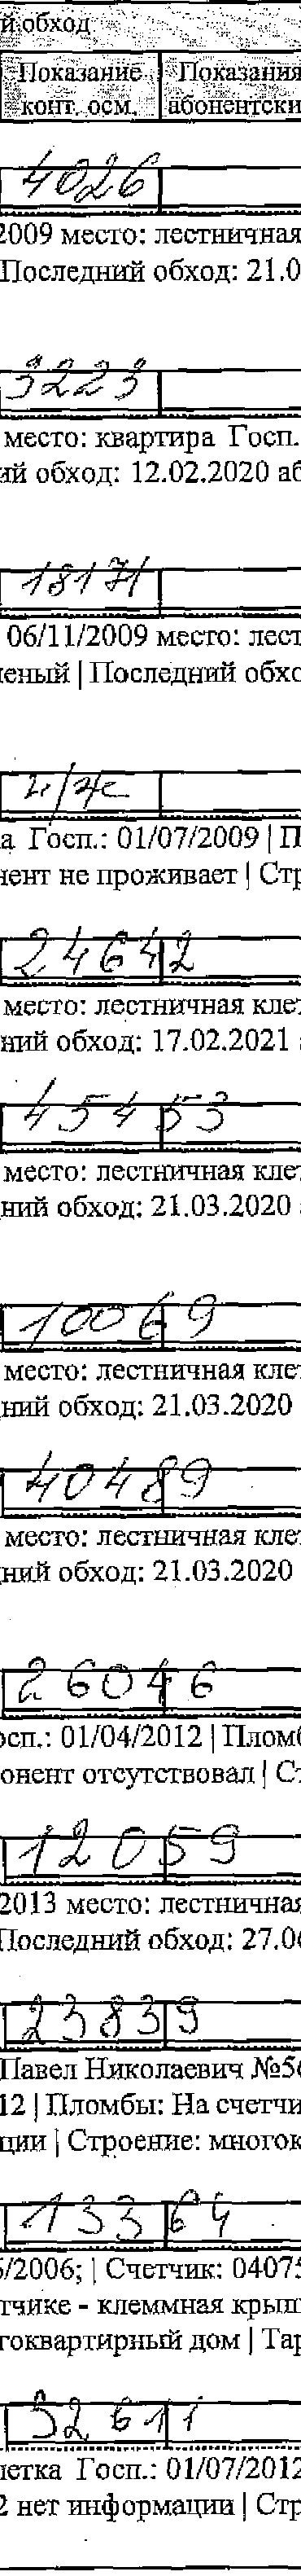 й обход
Показание Показания
конт. осм. абонентски
4026
2009 место: лестничная
Последний обход: 21.0
3223
место: квартира Госп.
ий обход: 12.02.2020 аб
18171
06/11/2009 место: лест
леный | Последний обхо
н/ж
а Госп.: 01/07/2009 | П
нент не проживает | Стр
24642
место: лестничная кле
ний обход: 17.02.2021
45453
место: лестничная кле
ний обход: 21.03.2020
10069
место: лестничная кле
ний обход: 21.03.2020
40489
место: лестничная кле
ний обход: 21.03.2020
26046
осп.: 01/04/2012 | Пломб
онент отсутствовал | С
12059
2013 место: лестничная
Последний обход: 27.06
23839
Павел Николаевич №56
12 | Пломбы: На счетчи
ции | Строение: многок
13364
5/2006; | Счетчик: 04075
тчике - клеммная крыш
гоквартирный дом | Тар
32611
летка Госп.: 01/07/2012
2 нет информации | Стр